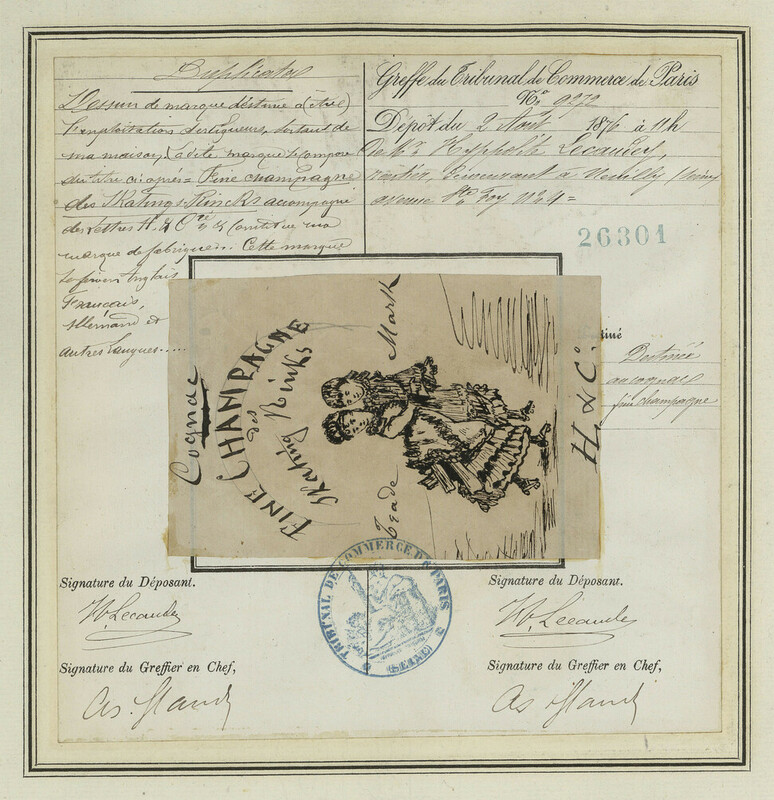 Duplicata
Dessin de marque destiné à (être)
l'exploitation des liqueurs, sortant de
ma maison, Ladite marque se compose
du titre ci-après = Fine champagne
des Skatings Rincks accompagné
des lettres H. & Cie & Constitue ma
marque de fabrique. Cette marque
se fera en Anglais
Français,
Allemand et
autres langues....
Greffe du Tribunal de Commerce de Paris
No 9272
Dépôt du 2 Août 1876 à 11h
De Mr Hyppolite Lecauder,
rentier, demeurant à Neuilly (Seine)
avenue Ste Foy No 4 =
26301
Destinée
au cognac
fine champagne
Cognac
FINE CHAMPAGNE
des
Skating Rinks
Trade Mark
H. & Co.
TRIBUNAL DE COMMERCE DE PARIS
(SEINE)
Signature du Déposant.
Signature du Déposant.
H. Lecauder
H. Lecauder
Signature du Greffier en Chef,
Signature du Greffier en Chef,